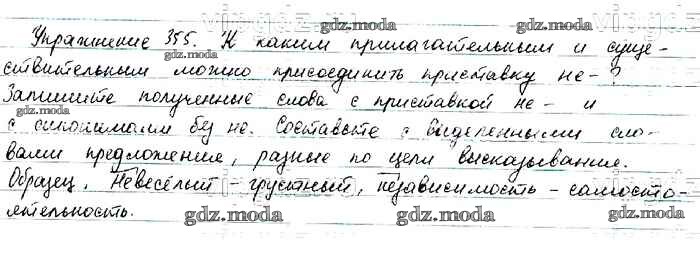 Упражнение 355. К каким прилагательным и суще-
ствительным можно присоединить приставку не-?
Запишите полученные слова с приставкой не- и
с синонимами бу не. Составьте с выделенными сло-
вами предложение, разные по цели высказывание.
Образец. Невесёлый - грустный, независимость - самосто-
ятельность.
gdz.moda
gdz.moda
gdz.moda
gdz.moda
gdz.moda
gdz.moda
gdz.moda
gdz.moda